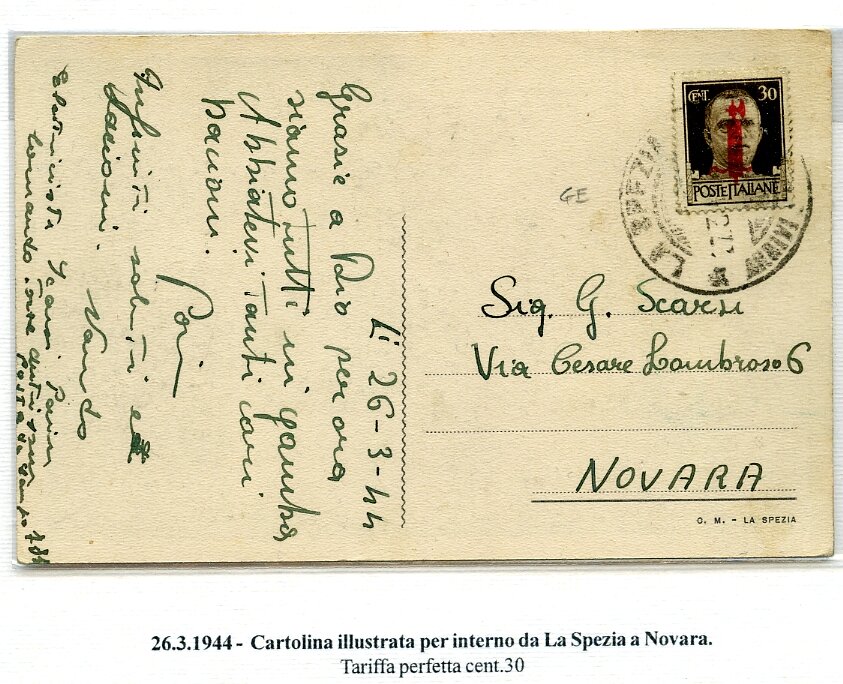 Lì 26-3-44
Grazie a Dio per ora
siamo tutti in gamba
Abbiatevi tanti cari
bacioni.
Poi
Infiniti saluti e
bacioni. Nando
Scarsi
Comando
Posta da Campo
CENT. 30
POSTE ITALIANE
LA SPEZIA
GE
Sig. G. Scarsi
Via Cesare Lombroso 6
NOVARA
O. M. - LA SPEZIA
26.3.1944 - Cartolina illustrata per interno da La Spezia a Novara.
Tariffa perfetta cent.30